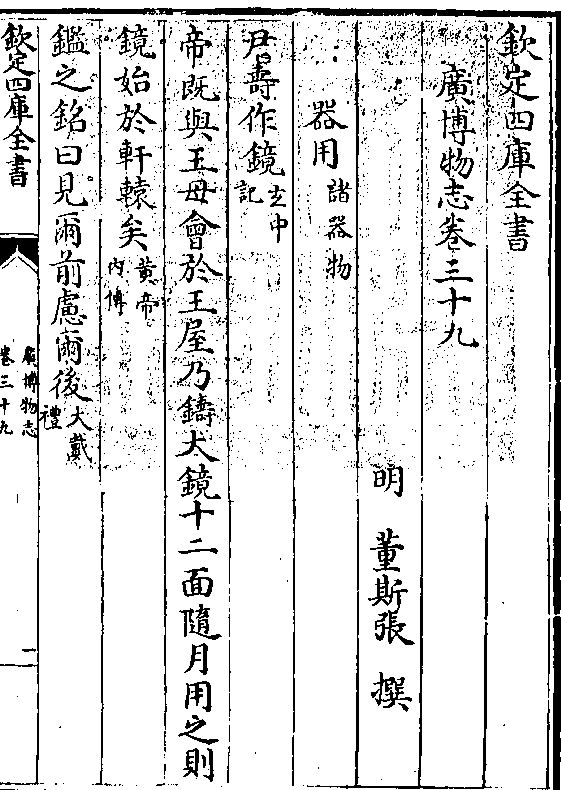 欽定四庫全書
廣博物志卷三十九
明 董斯張 撰
器用 諸器物
尹壽作鏡 玄中記
帝既與王母會於王屋乃鑄大鏡十二面隨月用之則
鏡始於軒轅矣 黃帝内傳
鑑之銘曰見爾前慮爾後 大戴禮
欽定四庫全書
廣博物志
卷三十九
一